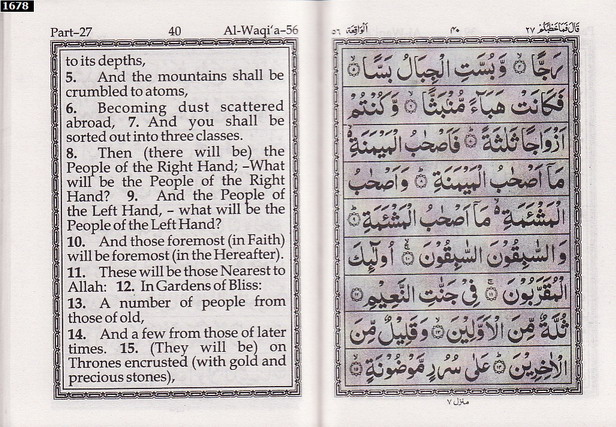 1678
Part–27 40 Al-Waqi‘a–56
to its depths,
5. And the mountains shall be
crumbled to atoms,
6. Becoming dust scattered
abroad, 7. And you shall be
sorted out into three classes.
8. Then (there will be) the
People of the Right Hand; –What
will be the People of the Right
Hand? 9. And the People of
the Left Hand, – what will be the
People of the Left Hand?
10. And those foremost (in Faith)
will be foremost (in the Hereafter).
11. These will be those Nearest to
Allah: 12. In Gardens of Bliss:
13. A number of people from
those of old,
14. And a few from those of later
times. 15. (They will be) on
Thrones encrusted (with gold and
precious stones),
قَالَ فَمَا خَطْبُكُمْ ٢٧ ٤٠ اَلْوَاقِعَة ٥٦
رَجًّا ۙ وَّ بُسَّتِ الْجِبَالُ بَسًّا ۙ
فَكَانَتْ هَبَآءً مُّنْۢبَثًّا ۙ وَّ كُنْتُمْ
اَزْوَاجًا ثَلٰثَةً ؕ فَاَصْحٰبُ الْمَيْمَنَةِ ۙ
مَاۤ اَصْحٰبُ الْمَيْمَنَةِ ؕ وَ اَصْحٰبُ
الْمَشْـَٔمَةِ ۙ مَاۤ اَصْحٰبُ الْمَشْـَٔمَةِ ؕ
وَ السّٰبِقُوْنَ السّٰبِقُوْنَ ۚ اُولٰٓئِكَ
الْمُقَرَّبُوْنَ ۚ فِيْ جَنّٰتِ النَّعِيْمِ
ثُلَّةٌ مِّنَ الْاَوَّلِيْنَ ۙ وَ قَلِيْلٌ مِّنَ
الْاٰخِرِيْنَ ؕ عَلٰى سُرُرٍ مَّوْضُوْنَةٍ ۙ
منزل ٧